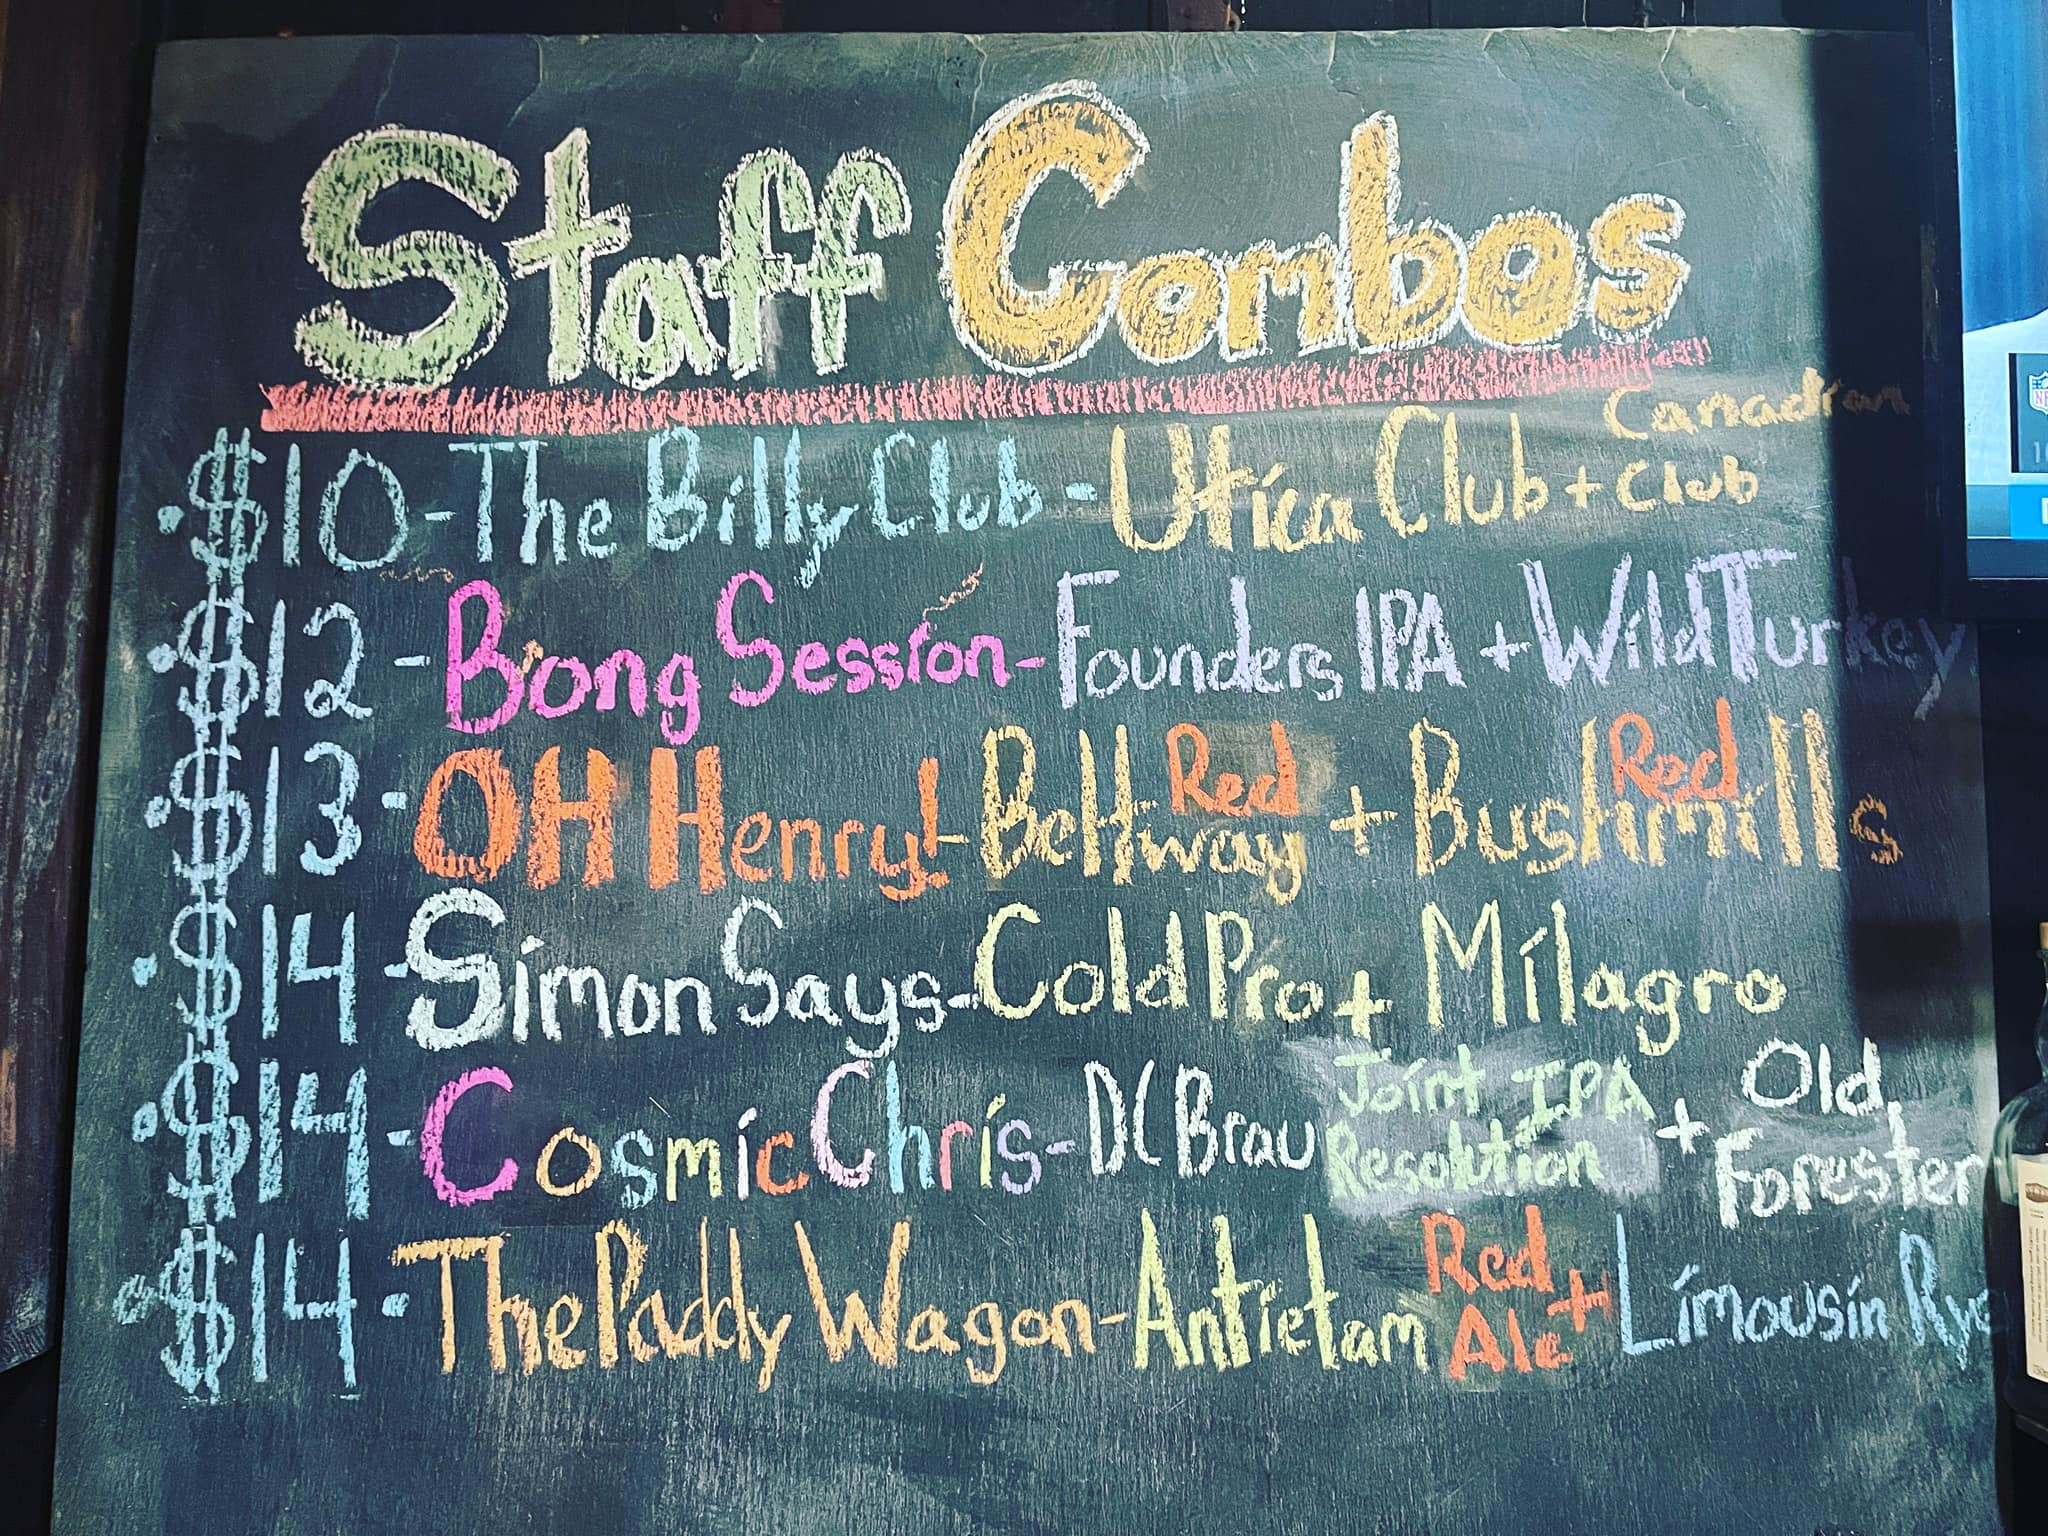 Staff Combos
•$10 - The Billy Club - Utica Club + Canadian Club
•$12 - Bong Session - Founders IPA + Wild Turkey
•$13 - OH Henry! - Beltway Red + Bushmills Red
•$14 - Simon Says - Cold Pro + Milagro
•$14 - Cosmic Chris - DC Brau Joint Resolution IPA + Old Forester
•$14 - The Paddy Wagon - Antietam Red Ale + Limousin Rye